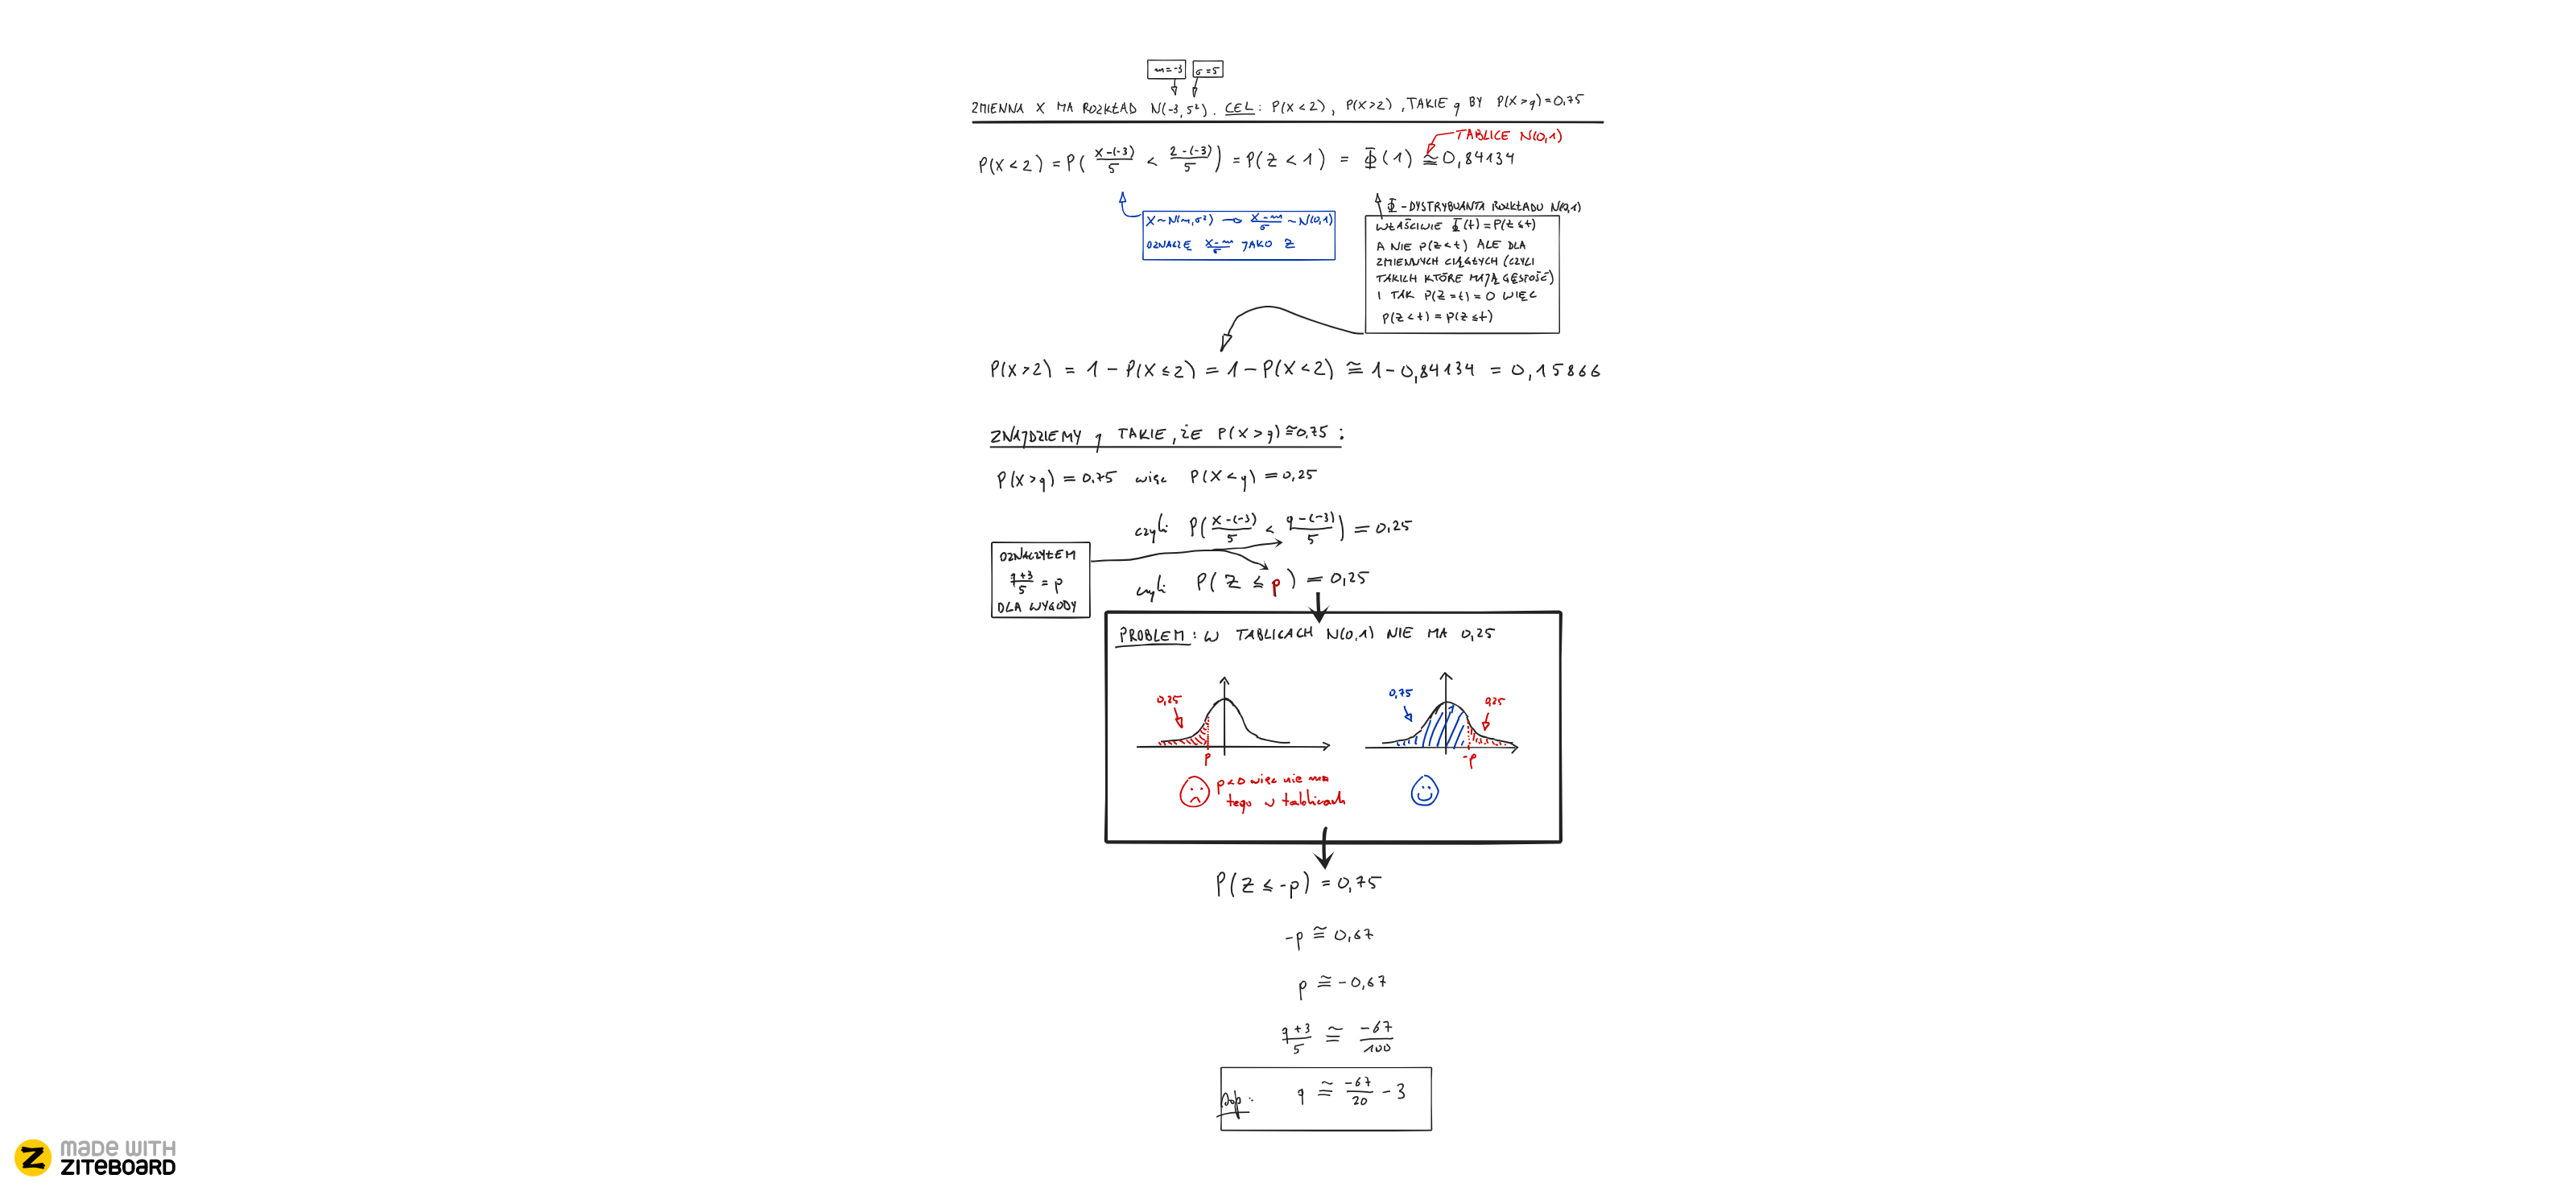 m=-3 σ=5
ZMIENNA X MA ROZKŁAD N(-3, 5²). CEL: P(X<2), P(X>2), TAKIE q BY P(X>q)=0,75
TABLICE N(0,1)
P(X<2) = P( \frac{X-(-3)}{5} < \frac{2-(-3)}{5} ) = P(Z<1) = Φ(1) ≅ 0,84134
X~N(m,σ²) → \frac{X-m}{σ} ~ N(0,1)
OZNACZĘ \frac{X-m}{σ} JAKO Z
Φ - DYSTRYBUANTA ROZKŁADU N(0,1)
WŁAŚCIWIE Φ(t)=P(Z≤t)
A NIE P(Z<t) ALE DLA
ZMIENNYCH CIĄGŁYCH (CZYLI
TAKICH KTÓRE MAJĄ GĘSTOŚĆ)
I TAK P(Z=t)=0 WIĘC
P(Z<t) = P(Z≤t)
P(X>2) = 1 - P(X≤2) = 1 - P(X<2) ≅ 1-0,84134 = 0,15866
ZNAJDZIEMY q TAKIE, ŻE P(X>q)≅0,75:
P(X>q) = 0,75 więc P(X<q) = 0,25
czyli P( \frac{X-(-3)}{5} < \frac{q-(-3)}{5} ) = 0,25
OZNACZYŁEM
\frac{q+3}{5} = p
DLA WYGODY
czyli P(Z ≤ p) = 0,25
PROBLEM: W TABLICACH N(0,1) NIE MA 0,25
0,25
p
p<0 więc nie ma
tego w tablicach
0,75
0,25
-p
P(Z ≤ -p) = 0,75
-p ≅ 0,67
p ≅ -0,67
\frac{q+3}{5} ≅ \frac{-67}{100}
Odp: q ≅ \frac{-67}{20} - 3
Z MADE WITH
ZITEBOARD